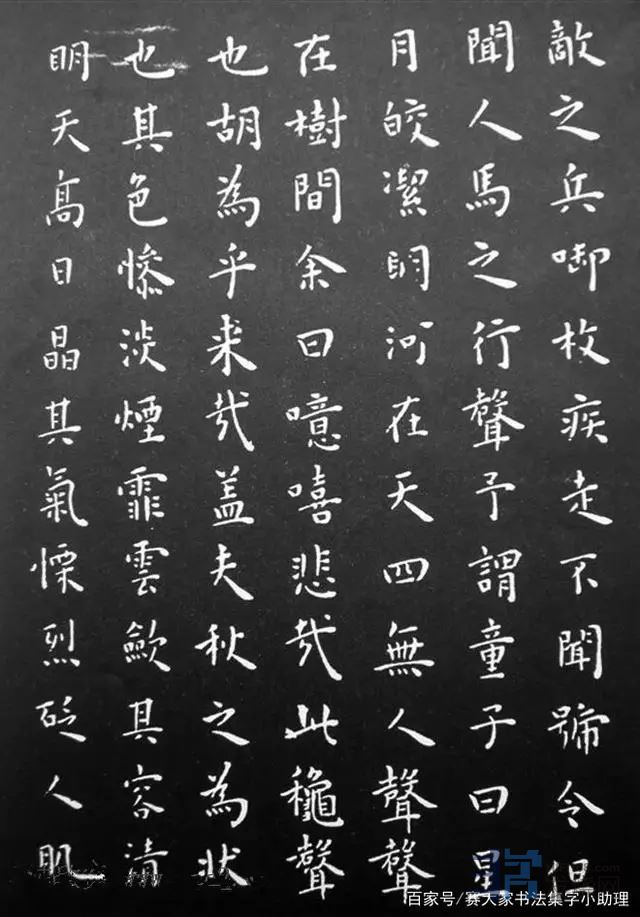 敵之兵啣枚疾走不聞號令但
聞人馬之行聲予謂童子曰星
月皎潔明河在天四無人聲聲
在樹間余曰噫嘻悲哉此穐聲
也胡為乎来哉盖夫秋之為狀
也其色慘淡煙霏雲歛其容清
明天髙日晶其氣慄烈砭人肌
百家号/赛大家书法集字小助理